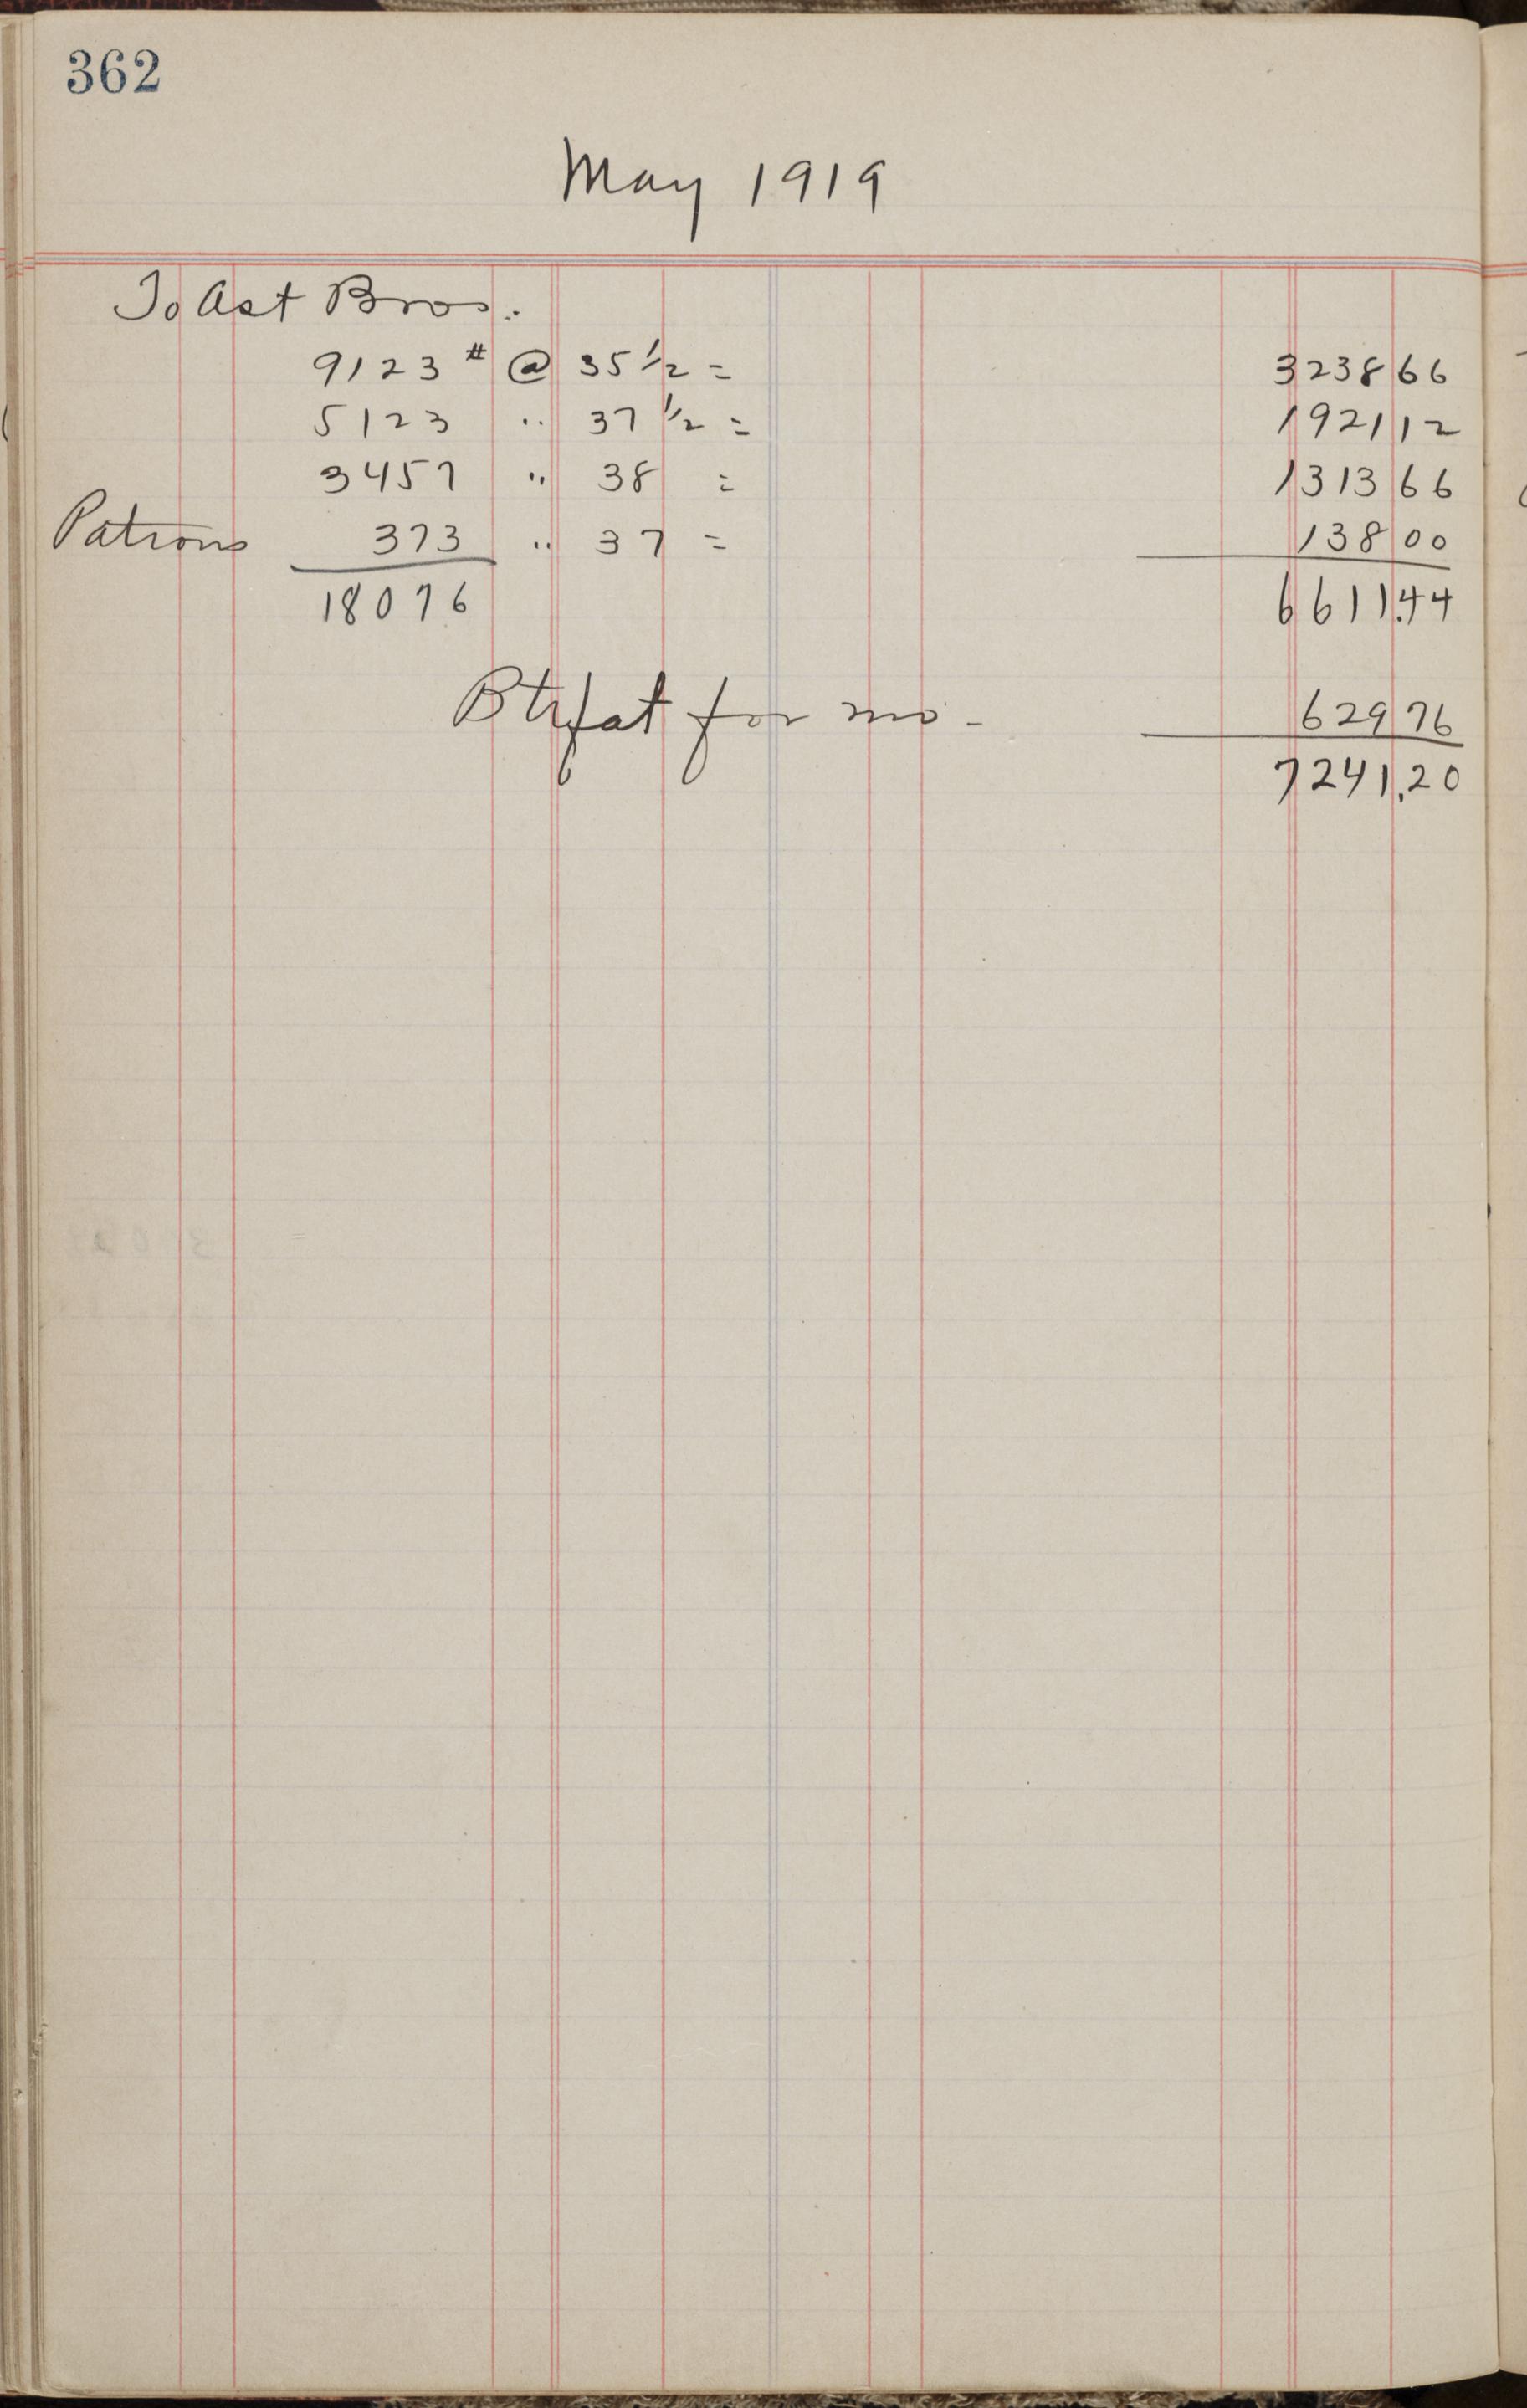 362
May 1919
To Ast Bros.
9123 # @ 35 1/2 = 3238 66
5123 " 37 1/2 = 1921 12
3457 " 38 = 1313 66
Patrons 373 " 37 = 138 00
18076 6611.44
Btrfat for mo - 629 76
7241.20